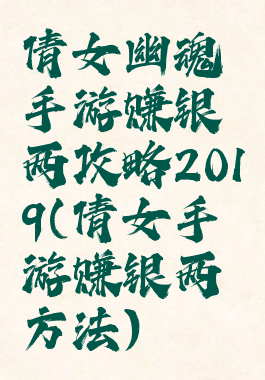 倩女幽魂
手游赚银
两攻略201
9(倩女手
游赚银两
方法)